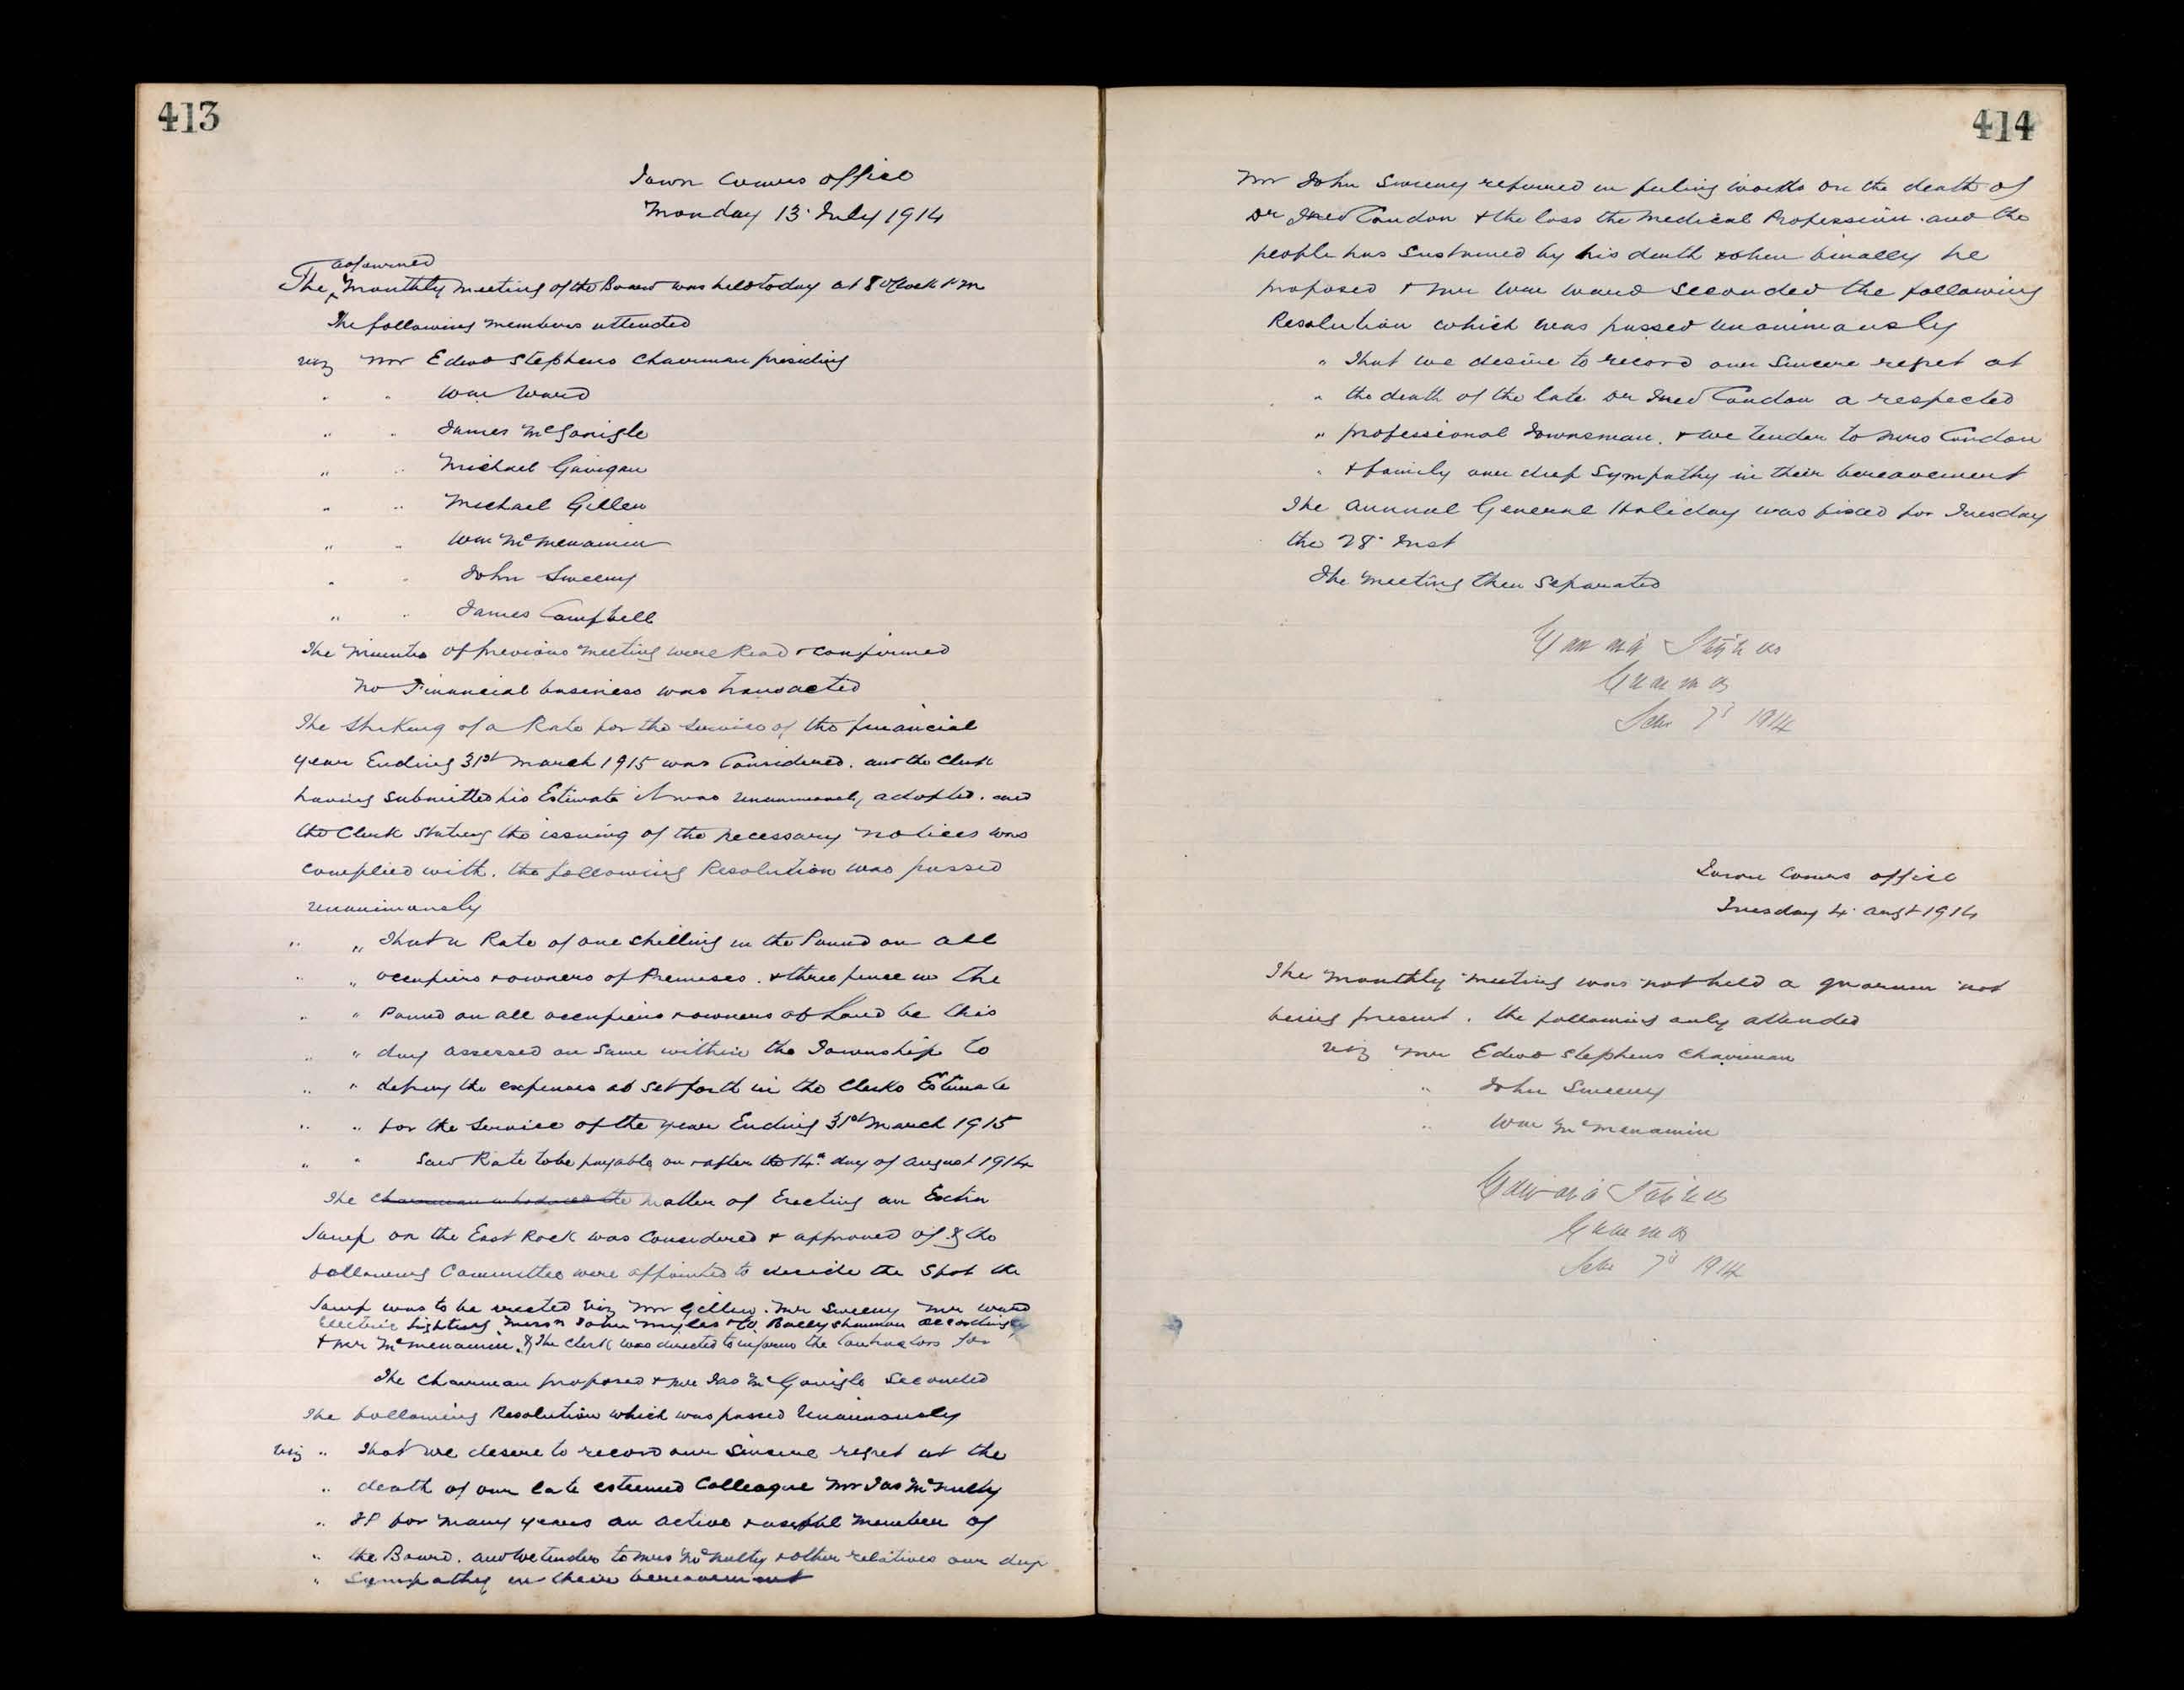 413
Town Comrs office
Monday 13 July 1914
adjourned
The Monthly meeting of the Board was held today at 8 oClock P m
The following members attended
viz Mr Edwd Stephens Chairman presiding
" " Wm Ward
" " James McGonigle
" " Michael Gavigan
" " Michael Gillen
" " Wm McMenamin
" " John Sweeny
" " James Campbell
The Minutes of previous Meeting were Read & confirmed
No Financial business was transacted
The Striking of a Rate for the Service of the financial
year Ending 31st March 1915 was Considered. and the Clerk
having submitted his Estimate it was unanimously adopted. and
the Clerk Stating the issuing of the necessary notices was
complied with. the following Resolution was passed
unanimously
" " That a Rate of one shilling in the Pound on all
" " occupiers & owners of Premises. & three pence in the
" " Pound on all occupiers & owners of Land be this
" " day assessed on same within the Township to
" " defray the expenses as set forth in the Clerks Estimate
" " for the Service of the year Ending 31st March 1915
" " Said Rate to be payable on & after the 14th day of August 1914
The Chairman introduced the matter of Erecting an Extra
Lamp on the East Rock was Considered & approved of & the
following Committee were appointed to decide the spot the
Lamp was to be erected viz Mr Gillen. Mr Sweeny Mr Ward
& Mr McMenamin. & The Clerk was directed to inform the Contractors for
Electric Lighting Messrs John Myles & Co Ballyshannon accordingly
The Chairman proposed & Mr Jas McGonigle Seconded
The following Resolution which was passed Unanimously
viz " That we desire to record our Sincere regret at the
" death of our late esteemed Colleague Mr Jas McNulty
" JP for many years an active & useful member of
" the Board. and We tender to Mrs McNulty & other relatives our deep
" Sympathy in their bereavement
414
Mr John Sweeny referred in feeling words on the death of
Dr Condon & the loss the Medical Profession. and the
people has Sustained by his death & when finally he
proposed & Mr Wm Ward Seconded the following
Resolution which was passed unanimously
" That we desire to record our Sincere regret at
" the death of the late Dr Condon a respected
" professional Townsman. & we tender to Mrs Condon
" & family our deep Sympathy in their bereavement
The Annual General Holiday was fixed for Tuesday
the 28 Inst
The Meeting then Separated
Edward Stephens
Chairman
7th 1914
Town Comrs office
Tuesday 4 Augt 1914
The Monthly Meeting was not held a quorum not
being present. the following only attended
viz Mr Edwd Stephens Chairman
" John Sweeny
" Wm McMenamin
Edward Stephens
Chairman
7th 1914